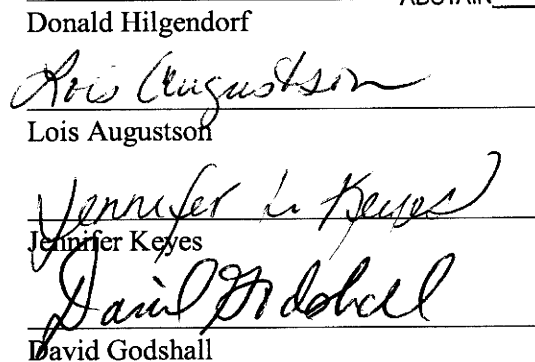 ABSTAIN
Donald Hilgendorf
Lois Augustson
Lois Augustson
Jennifer L. Keyes
Jennifer Keyes
David Godshall
David Godshall